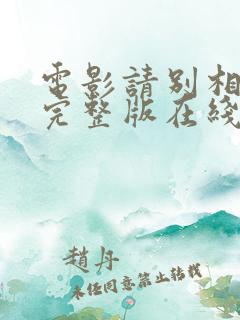 電影請別相
完整版在綫
趙丹
未經同意禁止轉載